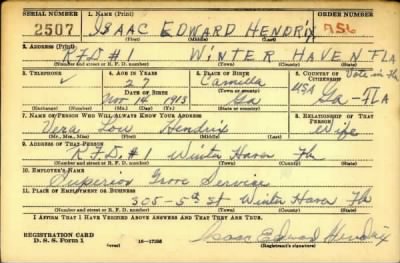 SERIAL NUMBER 1. NAME (Print) ORDER NUMBER
2507 ISAAC EDWARD HENDRIX A56
(First) (Middle) (Last)
2. ADDRESS (Print)
R.F.D. #1 WINTER HAVEN FLA
(Number and street or R. F. D. number) (Town) (County) (State)
3. TELEPHONE 4. AGE IN YEARS 5. PLACE OF BIRTH 6. COUNTRY OF CITIZENSHIP Vote in Fla
27 Camilla USA
DATE OF BIRTH (Town or county)
Nov 14 1913 Ga Ga - FLA
(Exchange) (Number) (Mo.) (Day) (Yr.) (State or country)
7. NAME OF PERSON WHO WILL ALWAYS KNOW YOUR ADDRESS 8. RELATIONSHIP OF THAT PERSON
Vera Lou Hendrix Wife
(Mr., Mrs., Miss) (First) (Middle) (Last)
9. ADDRESS OF THAT PERSON
R.F.D. #1 Winter Haven Fla
(Number and street or R. F. D. number) (Town) (County) (State)
10. EMPLOYER'S NAME
Superior Grove Service
11. PLACE OF EMPLOYMENT OR BUSINESS
305-5th St Winter Haven Fla
(Number and street or R. F. D. number) (Town) (County) (State)
I AFFIRM THAT I HAVE VERIFIED ABOVE ANSWERS AND THAT THEY ARE TRUE.
REGISTRATION CARD
D. S. S. Form 1 16-17105 Isaac Edward Hendrix
(Registrant's signature)